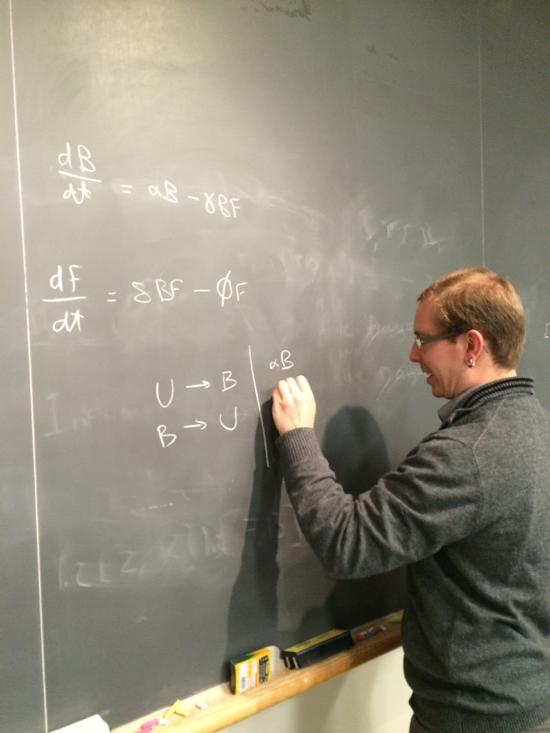 dB/dt = αB - γBF
dF/dt = δBF - ϕF
U → B | αB
B → U |